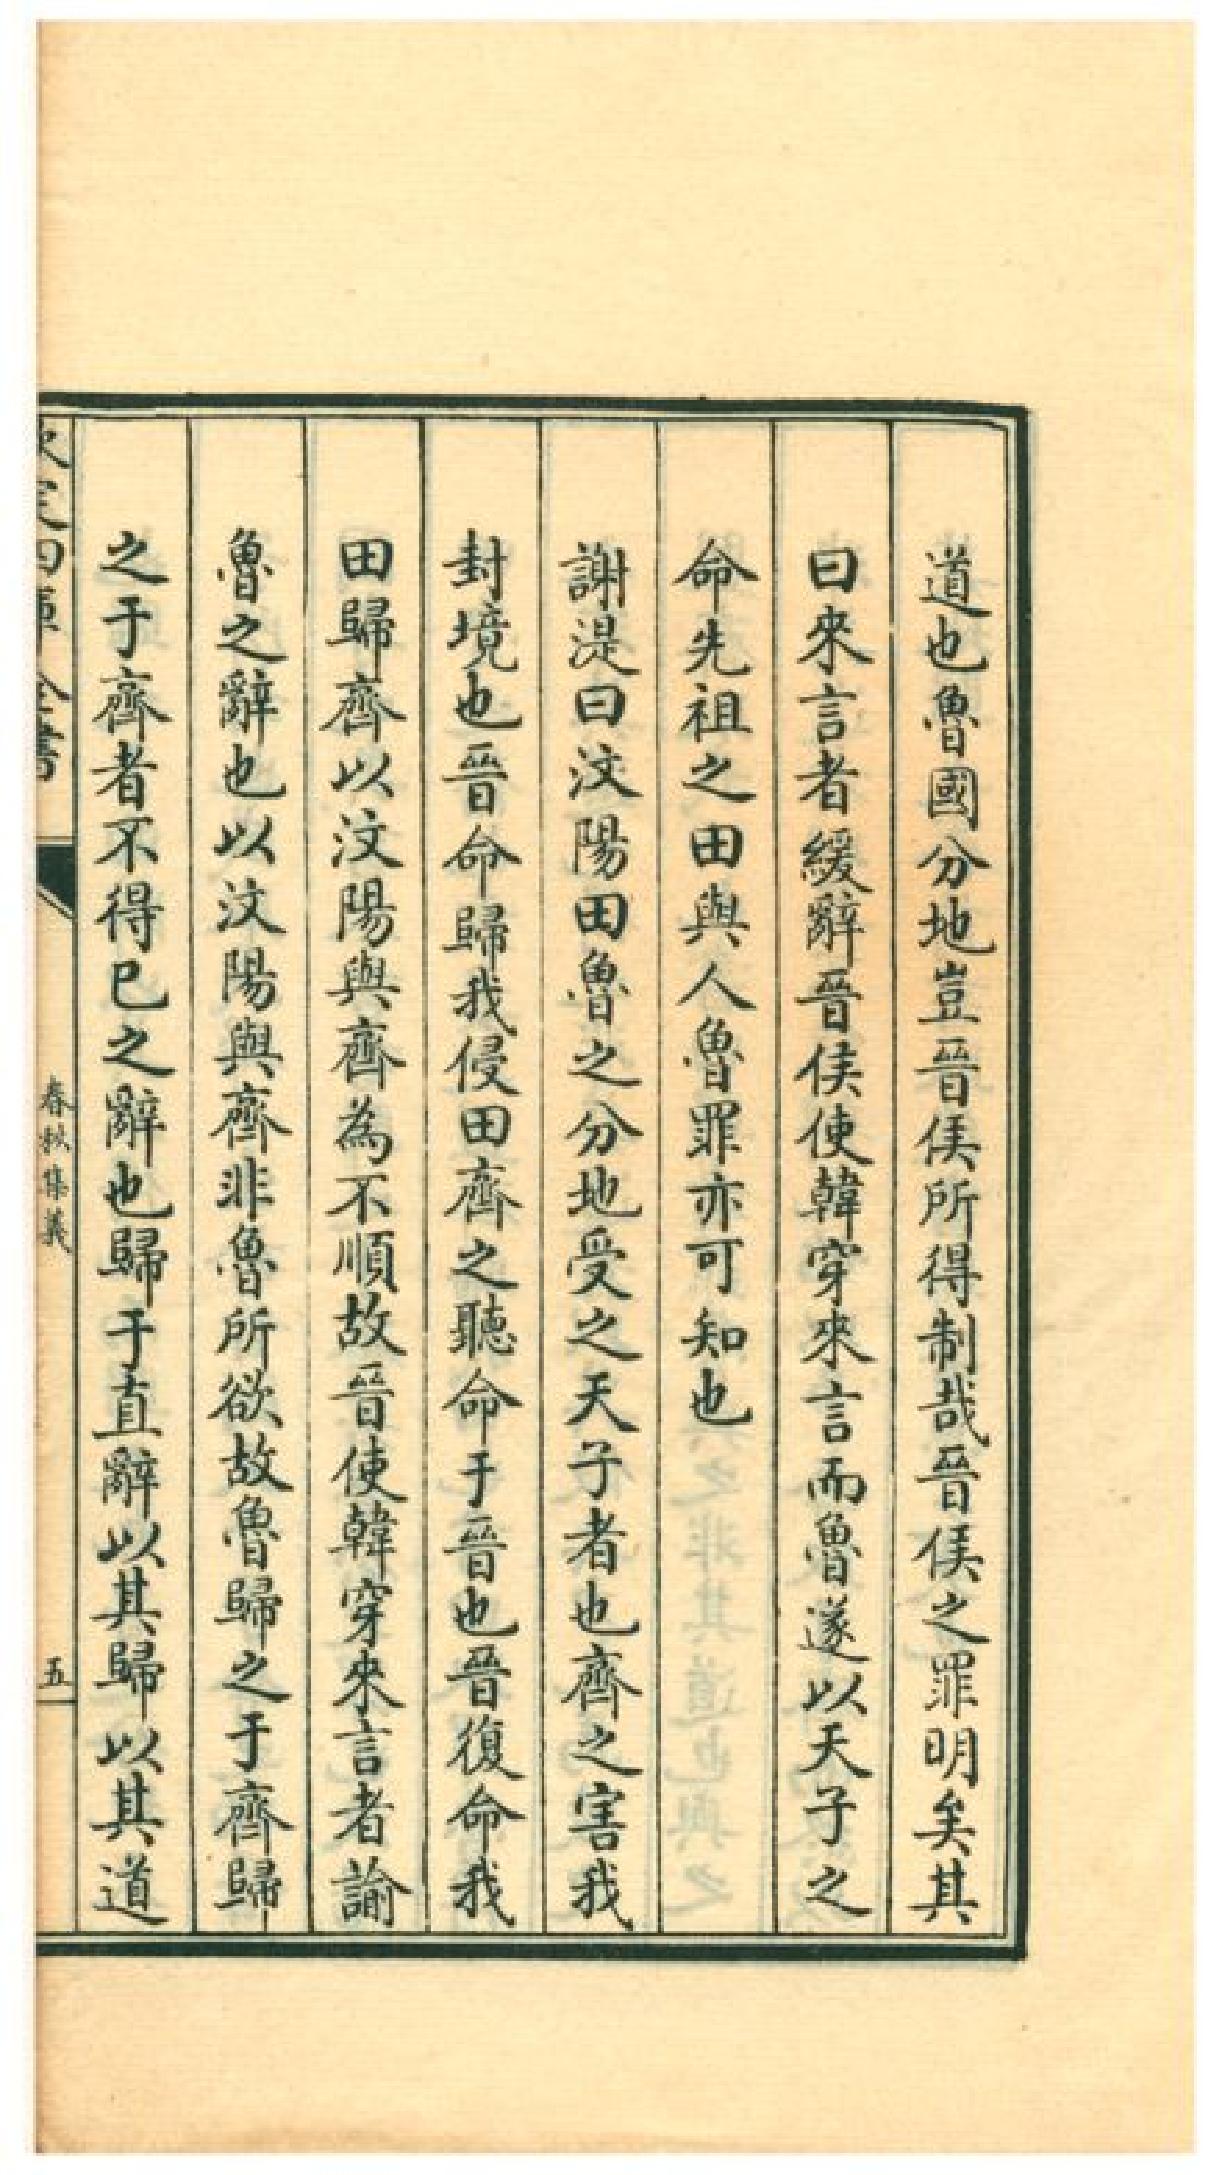 道也魯國分地豈晉侯所得制哉晉侯之罪明矣其
曰來言者緩辭晉侯使韓穿來言而魯遂以天子之
命先祖之田與人魯罪亦可知也
謝湜曰汶陽田魯之分地受之天子者也齊之害我
封境也晉命歸我侵田齊之聽命于晉也晉復命我
田歸齊以汶陽與齊為不順故晉使韓穿來言者諭
魯之辭也以汶陽與齊非魯所欲故魯歸之于齊歸
之于齊者不得已之辭也歸于直辭以其歸以其道
欽定四庫全書
春秋集義
五